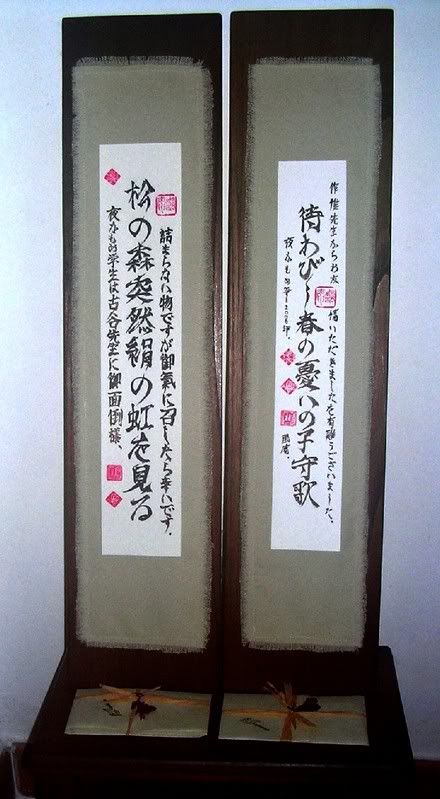 先生からお 描いただきましたを有難うございました。
待わびし春の憂いの子守歌
夜かもめ筆
詰まらない物ですが御氣に召したら幸いです。
松の森突然絹の虹を見る
夜かもめ学生は古谷先生に御面倒様、